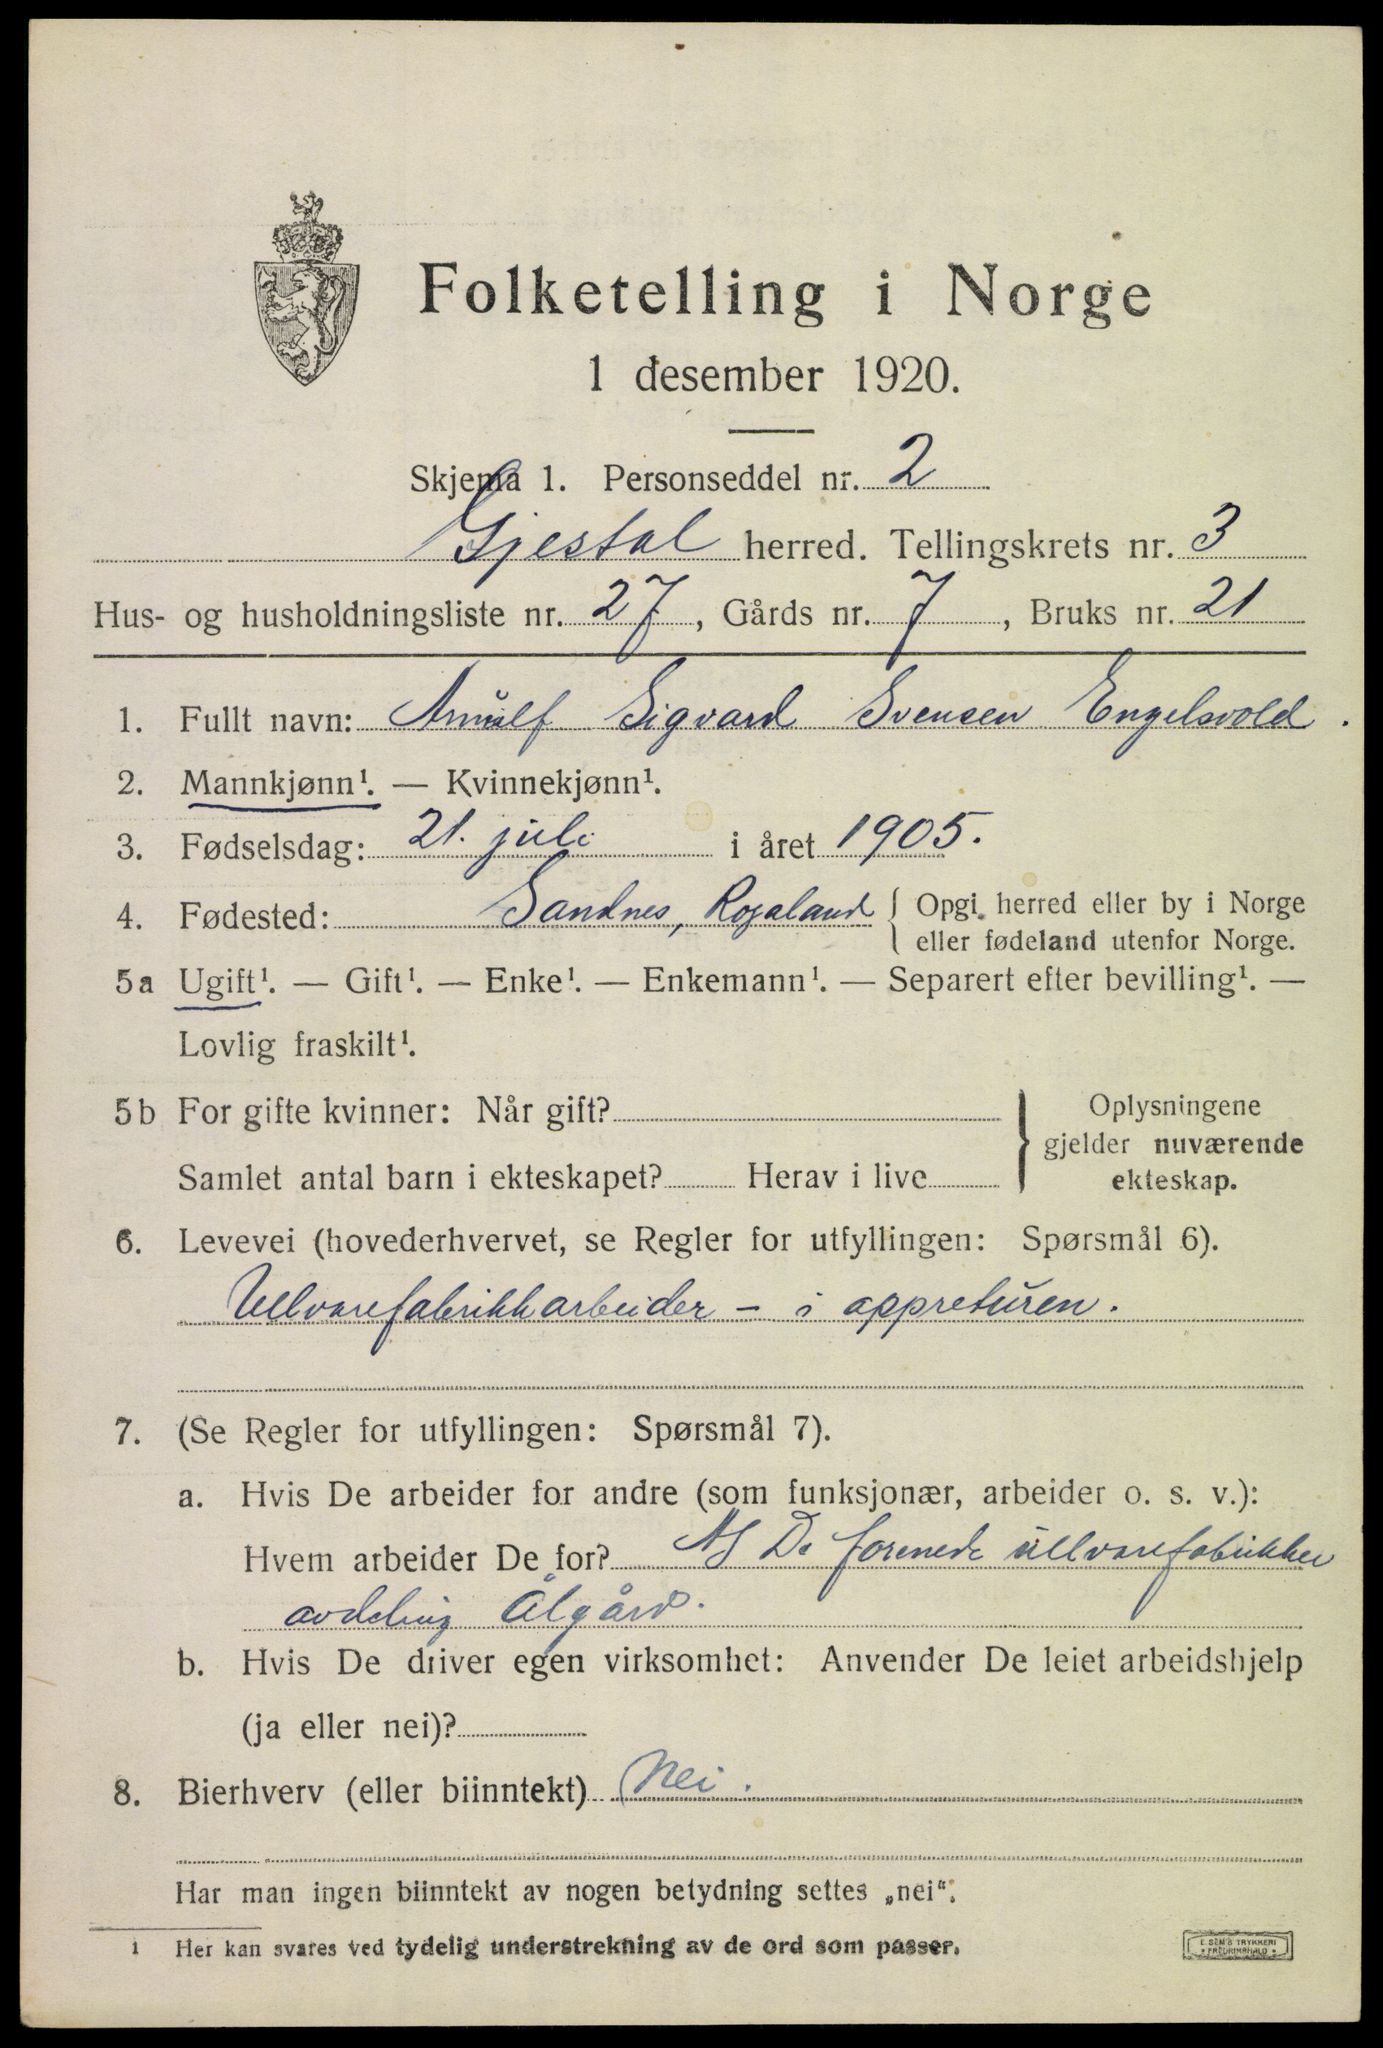 Folketelling i Norge
1 desember 1920.
Skjema 1. Personseddel nr. 2
Gjestal herred. Tellingskrets nr. 3
Hus- og husholdningsliste nr. 27, Gårds nr. 7, Bruks nr. 21
1. Fullt navn: Arnulf Sigvard Svensen Engelsvold.
2. Mannkjønn¹. — Kvinnekjønn¹.
3. Fødselsdag: 21. juli i året 1905.
4. Fødested: Sandnes, Rogaland { Opgi herred eller by i Norge
eller fødeland utenfor Norge.
5a Ugift¹. — Gift¹. — Enke¹. — Enkemann¹. — Separert efter bevilling¹. —
Lovlig fraskilt¹.
5b For gifte kvinner: Når gift? } Oplysningene
gjelder nuværende
Samlet antal barn i ekteskapet? Herav i live ekteskap.
6. Levevei (hovederhvervet, se Regler for utfyllingen: Spørsmål 6).
Ullvarefabrikkarbeider - i appreturen.
7. (Se Regler for utfyllingen: Spørsmål 7).
a. Hvis De arbeider for andre (som funksjonær, arbeider o. s. v.):
Hvem arbeider De for? AS De forenede ullvarefabrikker
avdeling Ålgård.
b. Hvis De driver egen virksomhet: Anvender De leiet arbeidshjelp
(ja eller nei)?
8. Bierhverv (eller biinntekt) Nei.
Har man ingen biinntekt av nogen betydning settes „nei“.
1 Her kan svares ved tydelig understrekning av de ord som passer.
E. SEM'S TRYKKERI
• FREDRIKSHALD •